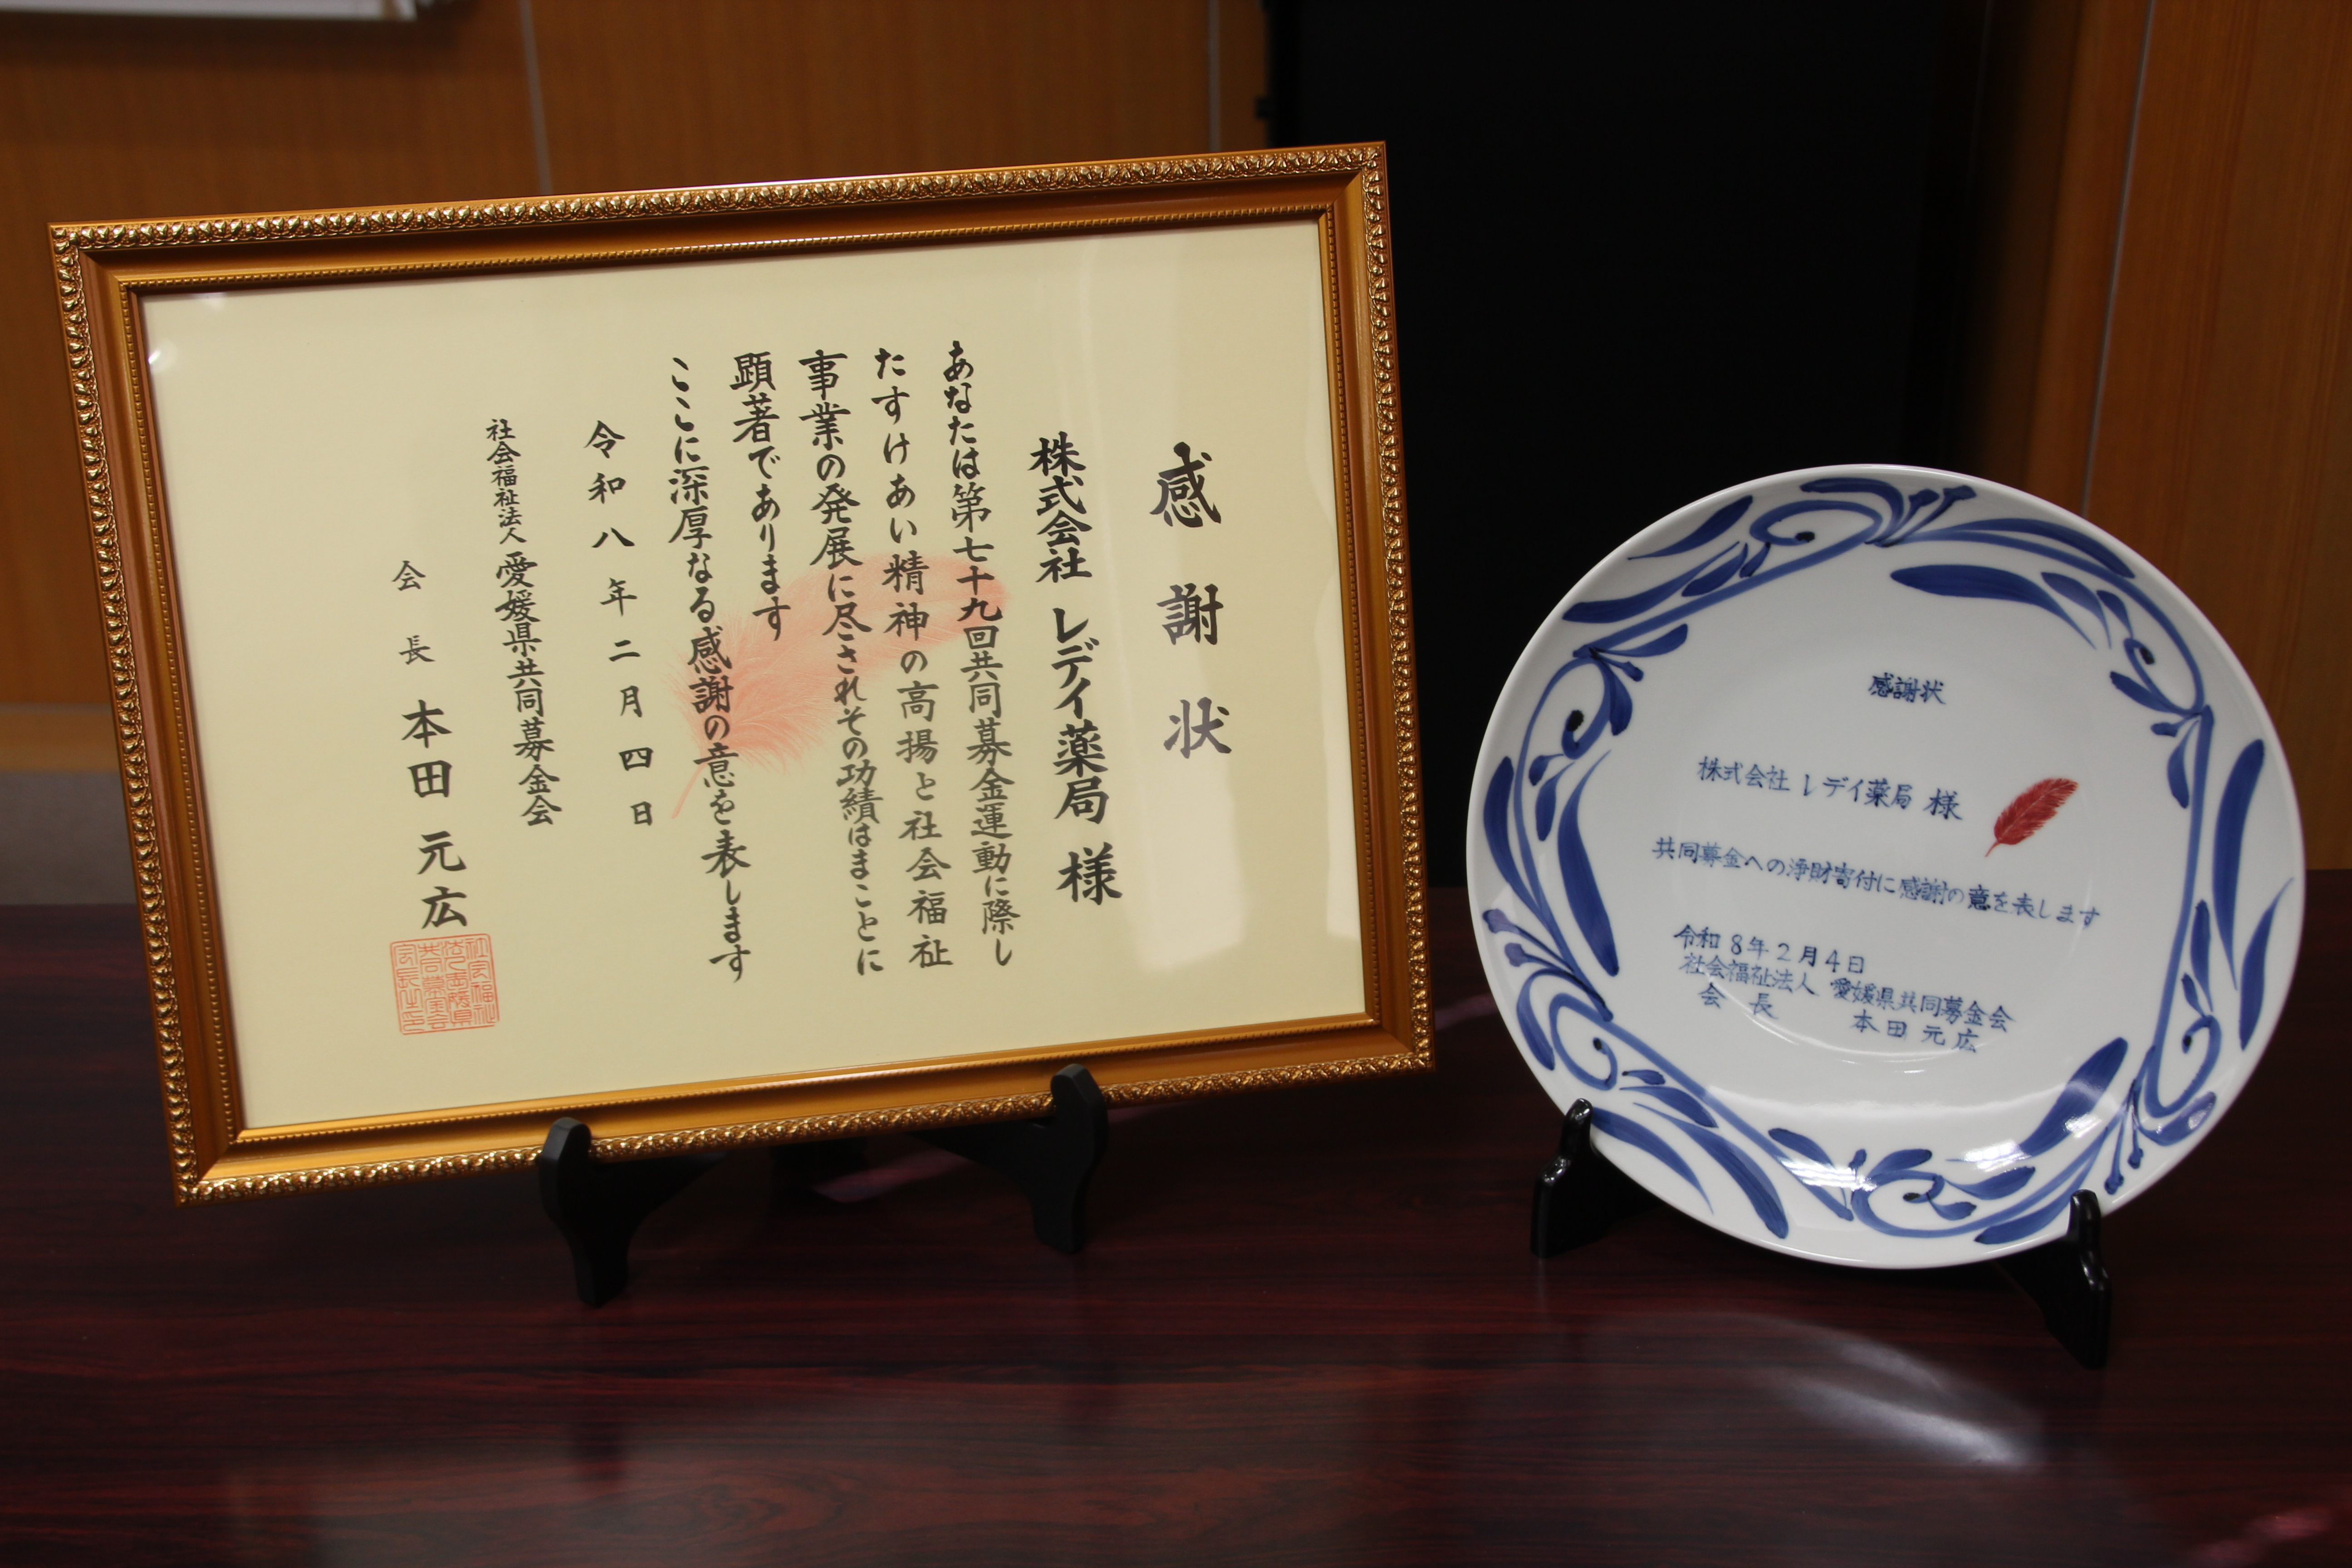 感謝状
株式会社 レデイ薬局 様
あなたは第七十九回共同募金運動に際し
たすけあい精神の高揚と社会福祉
事業の発展に尽されその功績はまことに
顕著であります
ここに深厚なる感謝の意を表します
令和八年二月四日
社会福祉法人 愛媛県共同募金会
会長 本田元広
感謝状
株式会社 レデイ薬局 様
共同募金への浄財寄付に感謝の意を表します
令和8年2月4日
社会福祉法人 愛媛県共同募金会
会長 本田元広